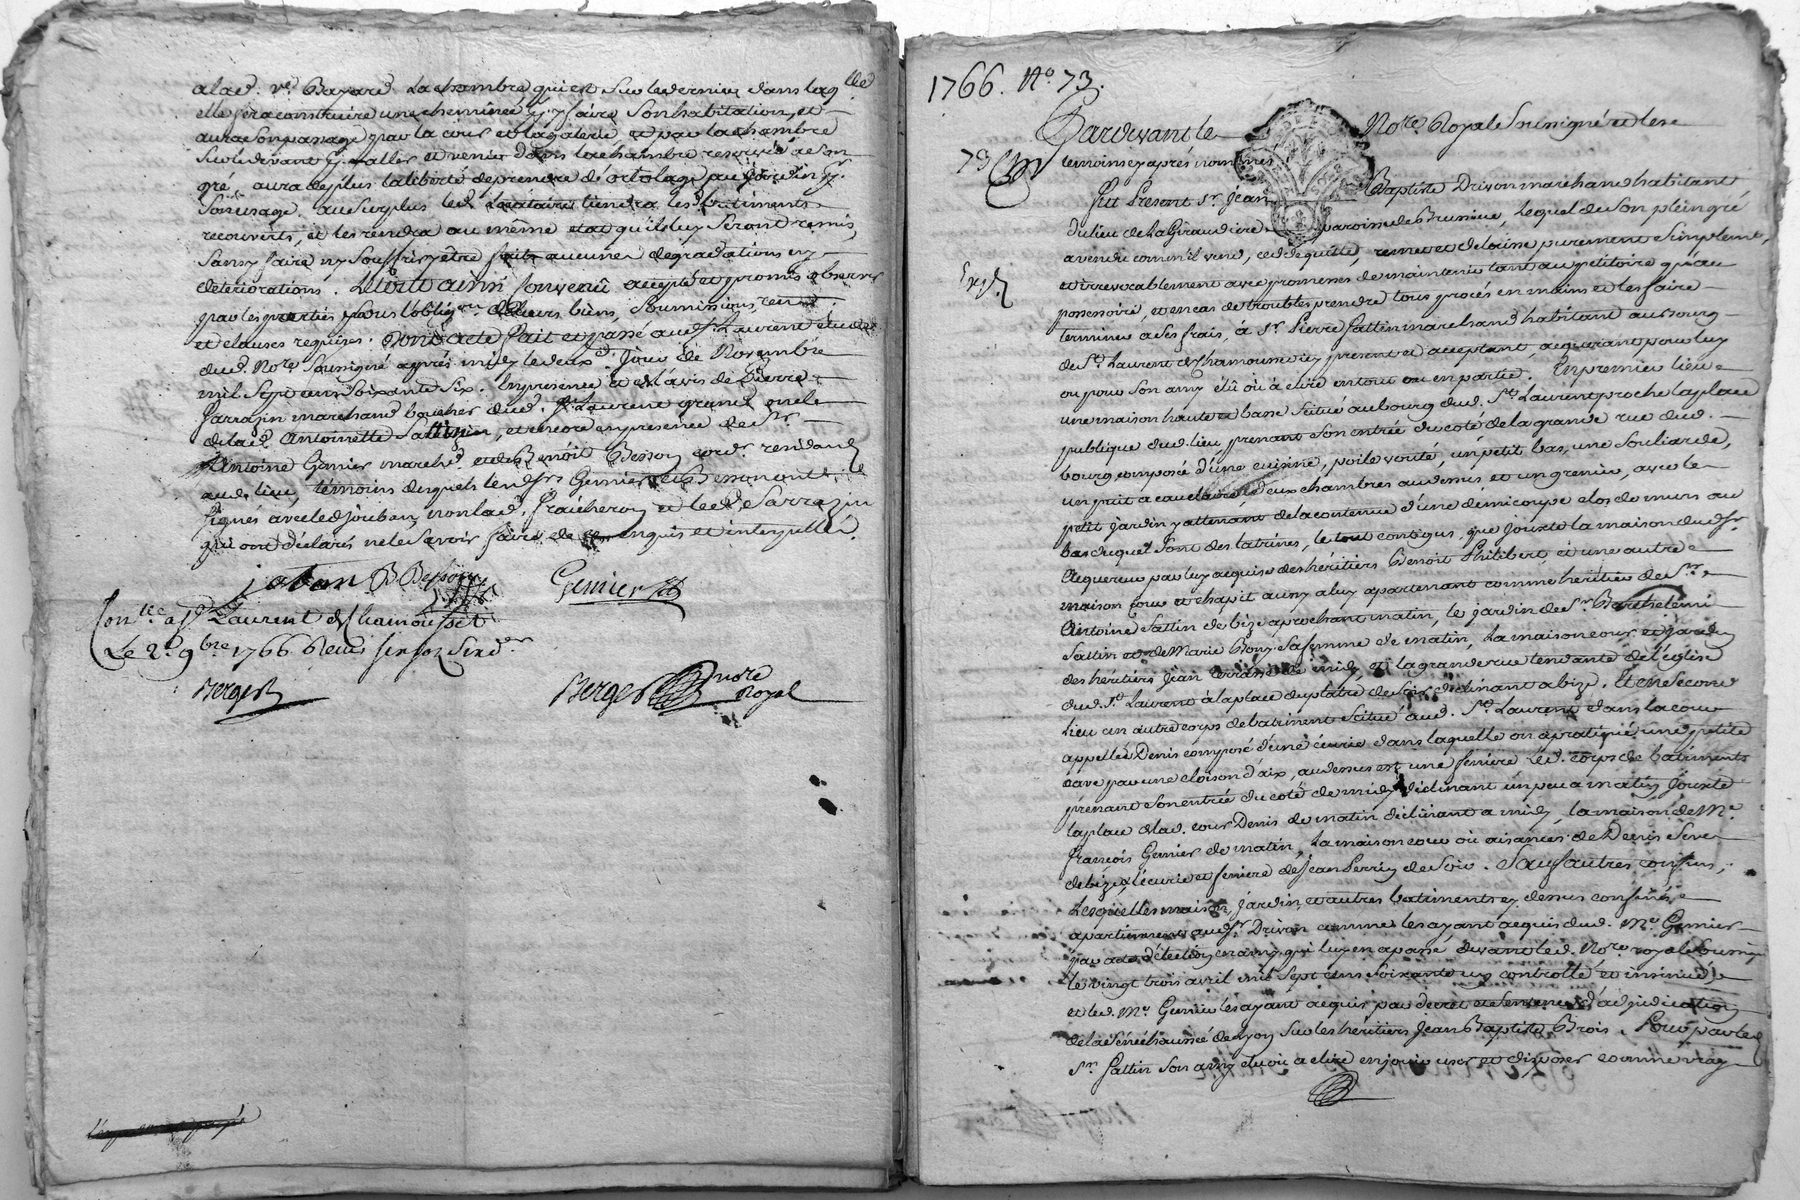 alad. ve. Bayard La chambre qui est sur le dernier dans laqlle
elle fera construire une cheminée p. y faire son habitation, et
aura son passage par la cour et la galerie, et par la chambre
sur le devant p. aller et venir dans la chambre reservée a son
gré, aura de plus la liberté de prendre de ortolage au jardin pr.
son usage. au surplus led. Locataire tiendra les. batiments
recouverts, et les rendra au même etat qu'ils luy seront remis,
sans y faire ny souffrir y être fait aucunes dégradations ny
déteriorations. Le tout ainsi convenû accepté et promis observer
par les parties sous l'obligon. de leurs biens, soumissions, ren
et clauses requises. Dont acte fait et passé aud. St. Laurent etude
dud. Nore. soussigné après midy le deuxe. jour de Novembre
mil sept cens soixante six. En presence et de l'avis de Pierre
Sarrazin marchand boucher dud. St. Laurent grand oncle
de lad. Antoinette et encore en presence de sr.
Antoine Genier marchd. et de Benoit Besson cordr. residand
aud. lieu, témoins desquels lesd. srs Genier et Besson ont
signés avec led. Jouban, non lad. et led. Sarrazin
qui ont déclarés ne le savoir faire de ce enquis et interpellé.
joban B Besson Genier
Conlée. a St. Laurent de Chamousset
Le 2e. 9bre 1766 Reçu
Berger
Berger nore Royal
1766. No. 73.
Pardevant le Nore. Royal soussigné et les
73 temoins cy aprés nommés
fut Present sr. Jean Baptiste Drivon marchand habitant
du lieu de La Giraudiere paroisse de Brussieu, lequel de son plein gré
a vendu comm'il vend, cede, quitte, remet et delaisse purement simplement,
Expd.
et irrevocablement avec promesses de maintenir tant au petitoire qu'au
possessoire, et en cas de troubles prendre tous procés en mains et les faire
terminer a ses frais, à Sr. Pierre fattin marchand habitant au bourg
de St. Laurent de Chamousset present et acceptant, acquerant pour luy
ou pour son amy élû où à elire en tout ou en partie. En premier lieu
une maison haute et basse scitué au bourg dud. St. Laurent proche la place
publique dud. lieu prenant son entrée du coté de la grande rue dud.
bourg composé d'une cuisine, poile vouté, un petit bas, une souliarde,
un puit a eau claire, deux chambres au dessus et un grenier, avec le
petit Jardin y attenant de la contenue d'une demi coupe clos de murs au
bas duquel sont des latrines, le tout contigus, que jouxte la maison dud. sr.
Acquereur par luy acquis des héritiers Benoit Philibert, et une autre
maison cour et chapit aussy a luy apartenant comme héritier de sr.
Antoine fattin de bize aprochant matin, le jardin de sr Barthelemi
fattin et de Marie Bony sa femme de matin, la maison cour et jardin
des héritiers Jean de midy, et la grande rue tendante de l'église
dud. St. Laurent à la place du platre de soir declinant a bize. Et en second
Lieu un autre corps de batiment scitué aud. St. Laurent dans la cour
appellée Denis composé d'une écurie dans laquelle on a pratiqué une petite
cave par une cloison d'aix, au dessus est une feniere led. corps de batiments
prenant son entrée du coté de midy déclinant un peu a matin, Jouxte
la place de lad. cour Denis de matin déclinant a midy, la maison de Me.
françois Genier de matin, la maison cour où aisances de Denis
de bize, l'écurie et feniere de Jean Perrin de soir. Sauf autres confins,
Lesquelles maison, jardin, et autres batiments cy dessus confinés
apartiennent aud. sr Drivon comme les ayant acquis dud. Me. Genier
par acte d'élection en amy qui luy en a passé devant led. Nore. royal soussigné
le vingt trois avril mil sept cens soixante un controllé et insinué,
et led. Me. Genier les ayant acquis par decret et sentence d'adjudication
de la sénéchaussée de Lyon sur les héritiers Jean Baptiste Brois. Pour par led.
Sr. fattin son amy élu où a elire en jouir user et disposer comme vray